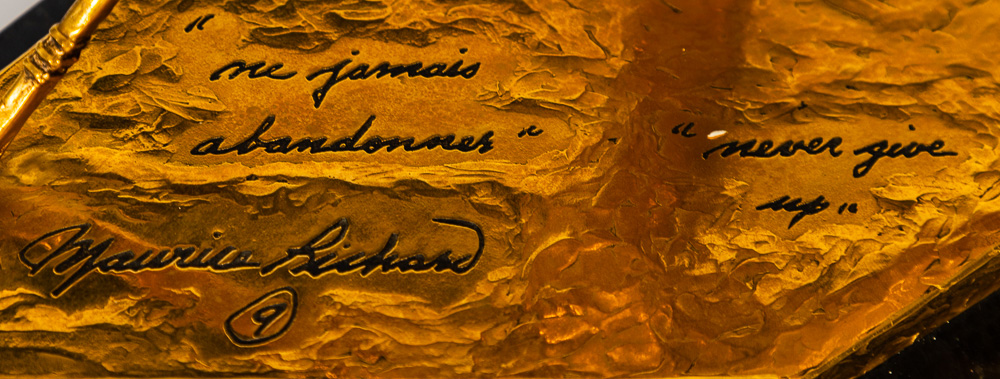 "ne jamais
abandonner"
Maurice Richard
9
"never give
up"